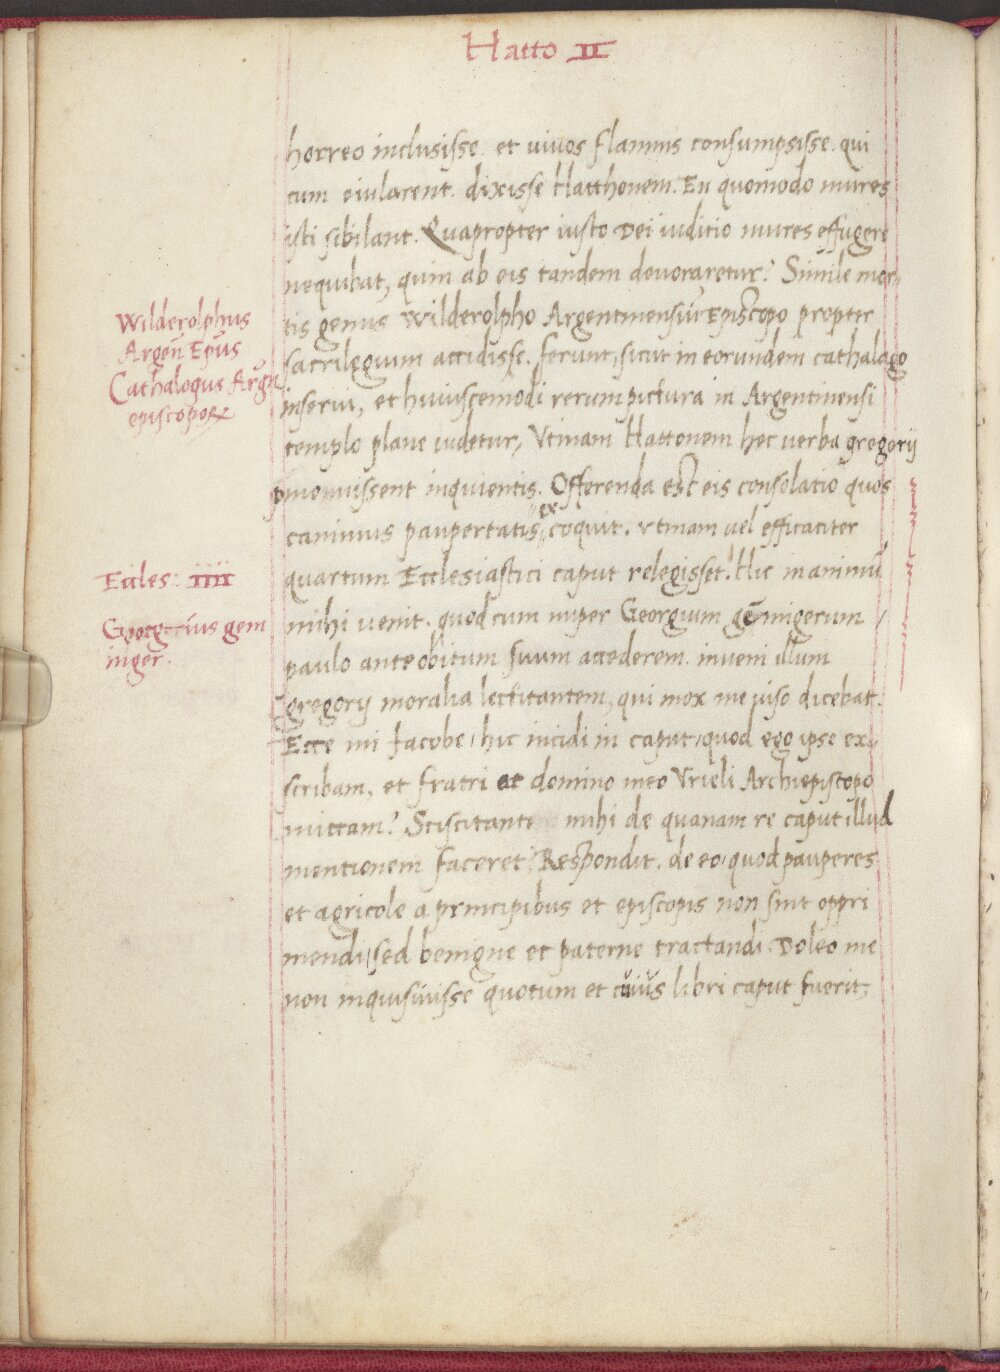 Hatto II
horreo inclusisse. et uiuos flammis consumpsisse. qui
cum eiularent. dixisse Hatthonem. En quomodo mures
isti sibilant. Quapropter iusto Dei iuditio mures effugere
nequibat, quin ab eis tandem deuoraretur? Simile mor,
tis genus Wilderolpho Argentinensiū Episcopo propter
sacrilegium accidisse. ferunt, sicut in eorundem cathalago
inserui, et huiuscemodi rerum pictura in Argentinensi
templo plane uidetur, Vtinam Hattonem hec uerba gregorij
pmouissent inquientis. Offerenda est eis consolatio quos
caminus paupertatis ex coquit. vtinam uel efficatiter
quartum Ecclesiastici caput relegisset! Hic in animū
mihi uenit. quod cum nuper Georgium gēmigerum
paulo ante obitum suum accederem. inueni illum
gregorij moralia lectitantem, qui mox me uiso dicebat.
Ecce mi Jacobe, hic incidi in caput, quod ego ipse ex,
scribam, et fratri et domino meo Vrieli Archiepiscopo
mittam? Sciscitanti mihi de quanam re caput illud
mentionem faceret? Respondit. de eo, quod pauperes
et agricole a principibus et episcopis non sint oppri
mendi, sed benigne et paterne tractandi. Doleo me
non inquisiuisse quotum et cuius libri caput fuerit;
Wilderolphus
Argeñ Epūs
Cathalogus Argñ
episcopoꝝ
Eccles: IIII
Georgius gem
inger.